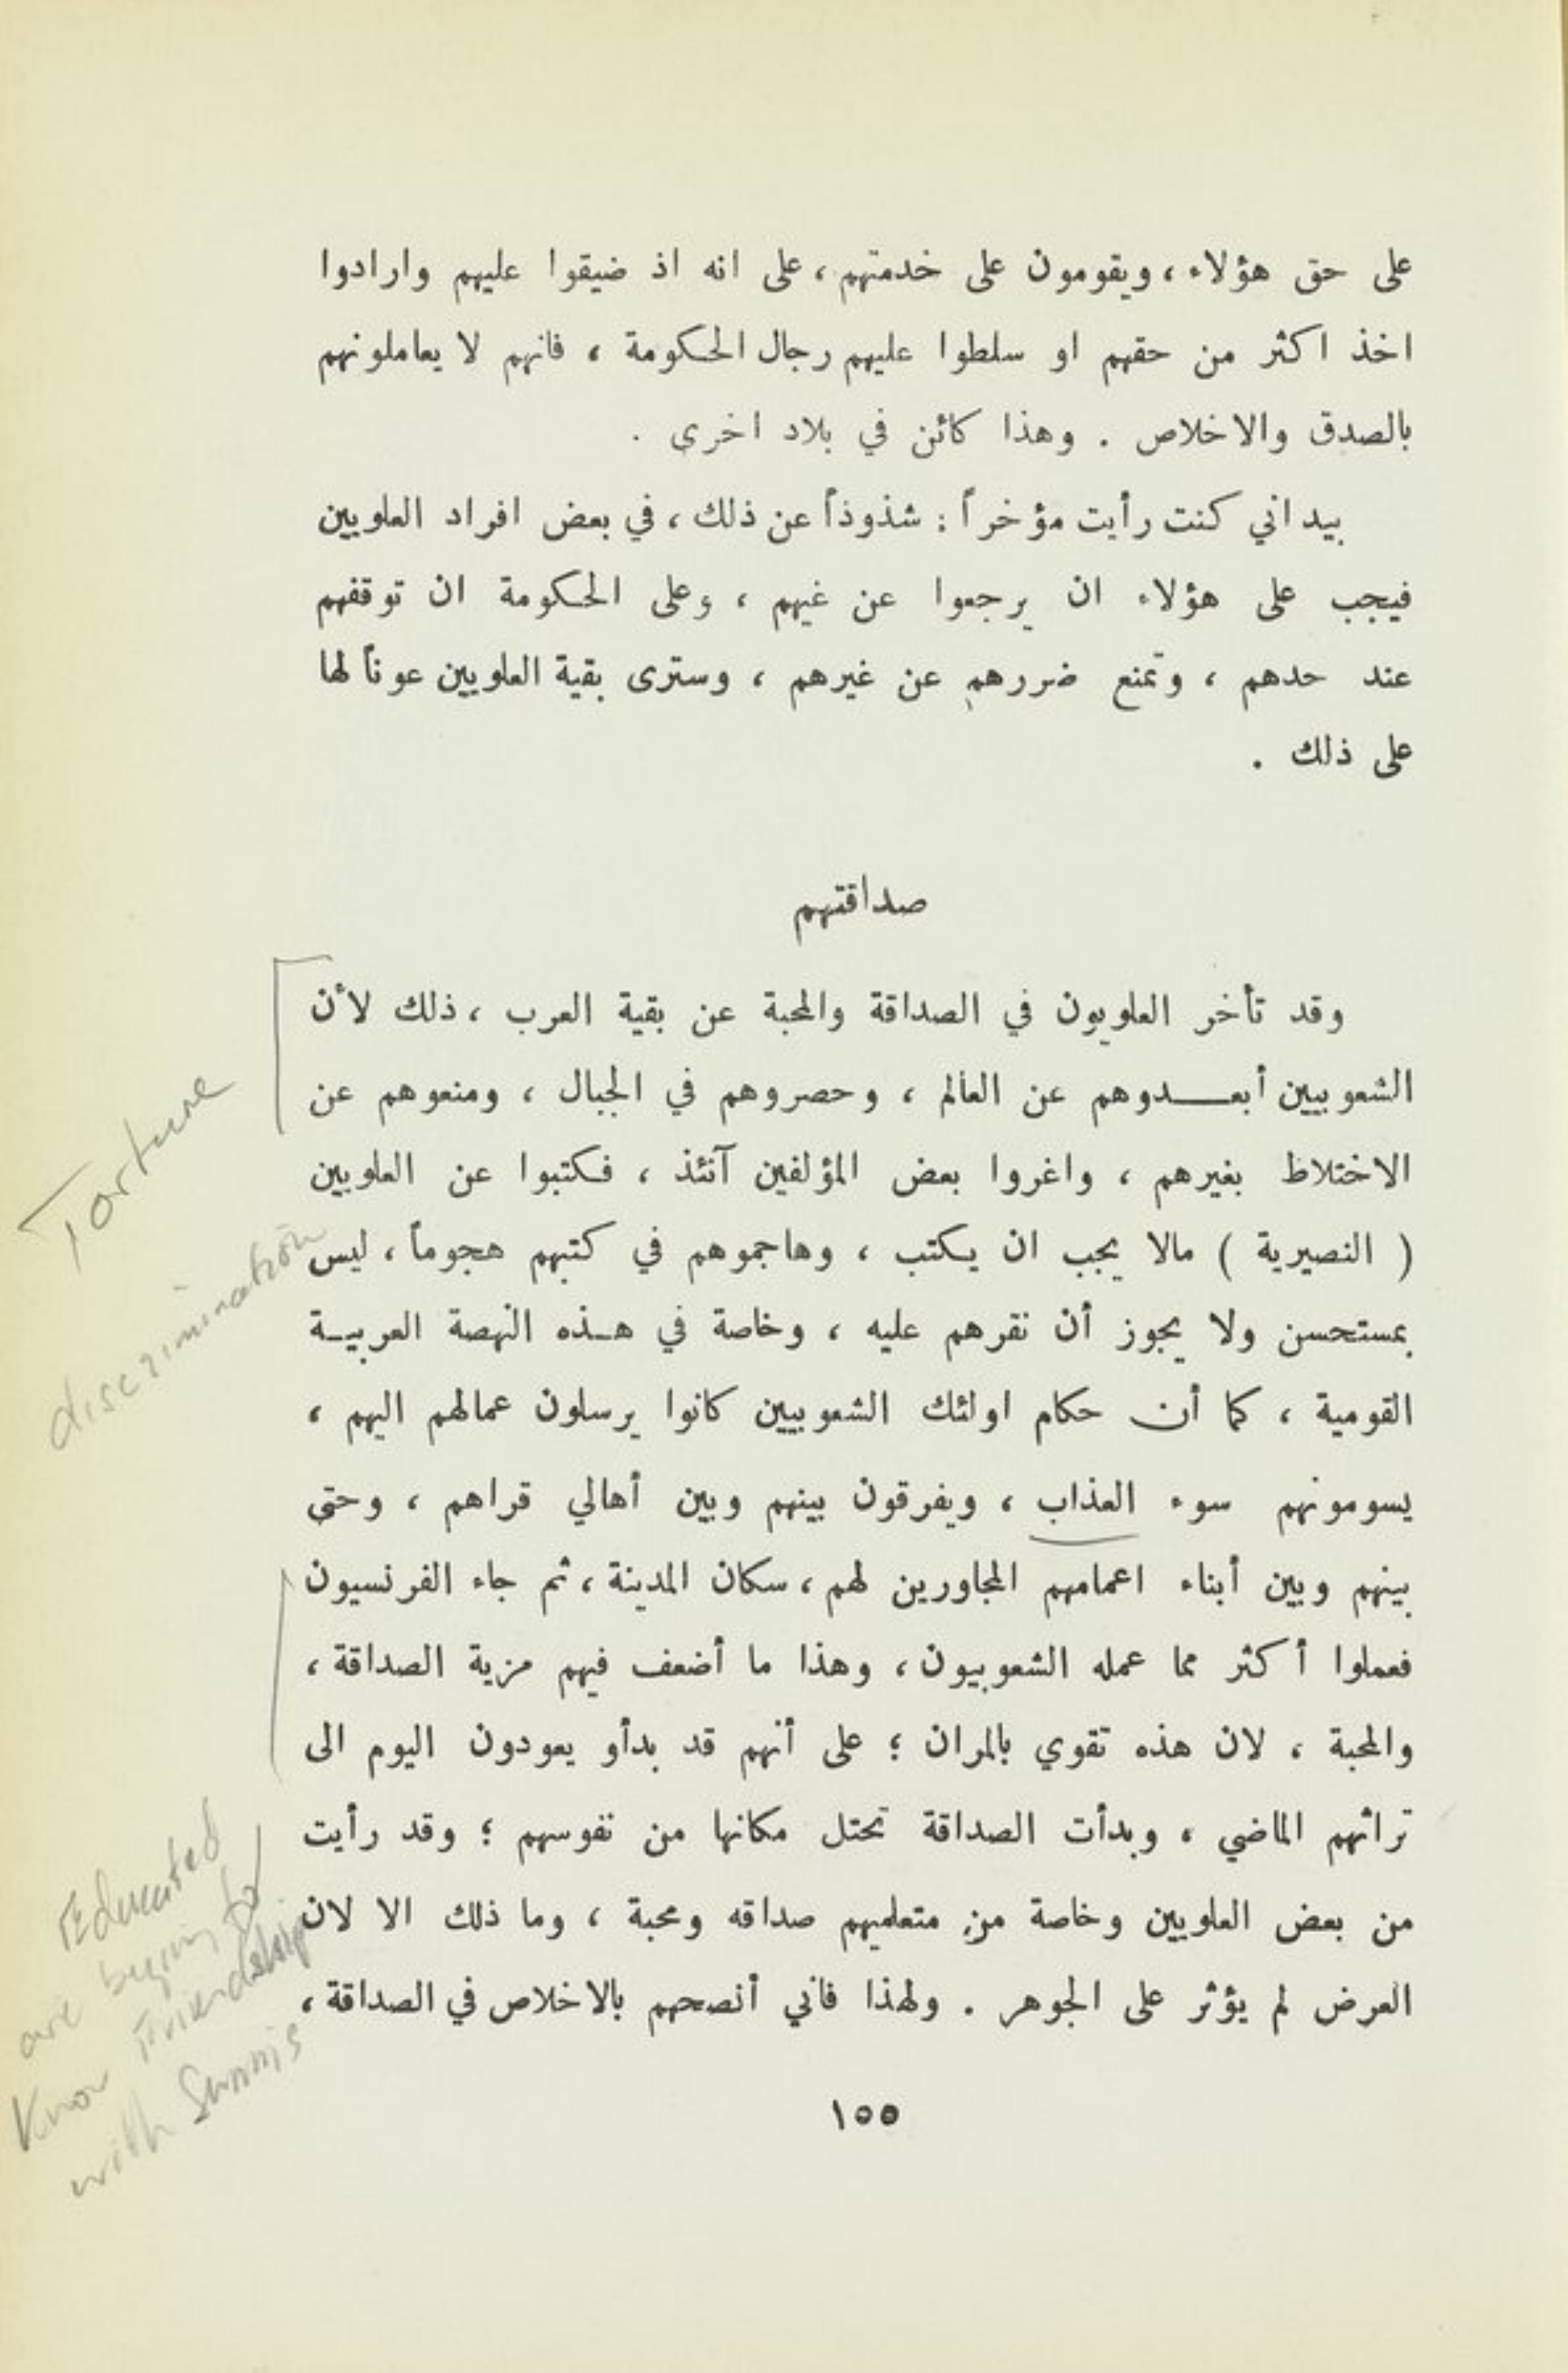 على حق هؤلاء ، ويقومون على خدمتهم ، على انه اذ ضيقوا عليهم وارادوا
اخذ اكثر من حقهم او سلطوا عليهم رجال الحكومة ، فانهم لا يعاملونهم
بالصدق والاخلاص . وهذا كائن في بلاد اخرى .
بيد اني كنت رأيت مؤخراً : شذوذاً عن ذلك ، في بعض افراد العلويين
فيجب على هؤلاء ان يرجعوا عن غيهم ، وعلى الحكومة ان توقفهم
عند حدهم ، وتمنع ضررهم عن غيرهم ، وسترى بقية العلويين عوناً لها
على ذلك .
صداقتهم
وقد تأخر العلويون في الصداقة والمحبة عن بقية العرب ، ذلك لأن
الشعوبيين أبعـــدوهم عن العالم ، وحصروهم في الجبال ، ومنعوهم عن
الاختلاظ بغيرهم ، واغروا بعض المؤلفين آنئذ ، فكتبوا عن العلويين
( النصيرية ) مالا يجب ان يكتب ، وهاجموهم في كتبهم هجوماً ، ليس
بمستحسن ولا يجوز أن نقرهم عليه ، وخاصة في هـذه النهصة العربيـة
القومية ، كما أن حكام اولئك الشعوبيين كانوا يرسلون عمالهم اليهم ،
يسومونهم سوء العذاب ، ويفرقون بينهم وبين أهالي قراهم ، وحتى
بينهم وبين أبناء اعمامهم المجاورين لهم ، سكان المدينة ، ثم جاء الفرنسيون
فعملوا أكثر مما عمله الشعوبيون ، وهذا ما أضعف فيهم مزية الصداقة ،
والمحبة ، لان هذه تقوي بالمران ؛ على أنهم قد بدأو يعودون اليوم الى
تراثهم الماضي ، وبدأت الصداقة تحتل مكانها من نفوسهم ؛ وقد رأيت
من بعض العلويين وخاصة من متعلميهم صداقه ومحبة ، وما ذلك الا لان
العرض لم يؤثر على الجوهر . ولهذا فاني أنصحهم بالاخلاص في الصداقة ،
١٥٥
Torture
discrimination
Educated
are begining to
Know Friendship
with Sunnis